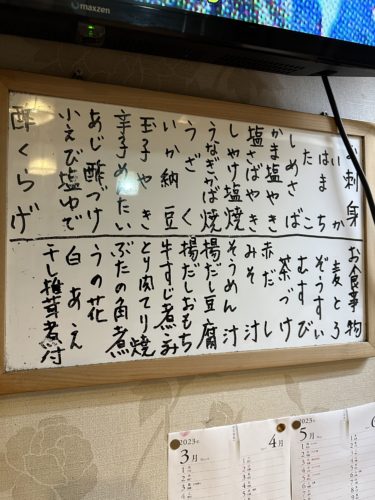 maxzen
お刺身
いか
はまち
たこ
しめさば
かま塩やき
塩さばやき
しゃけ塩焼
うなぎかば焼
うざく
いか納豆
玉子やき
辛子めんたい
あじ酢づけ
小えび塩ゆで
酢くらげ
お食事物
麦とろ
ぞうすい
むすび
茶づけ
赤だし
みそ汁
そうめん汁
揚だし豆腐
揚だしおもち
牛すじ煮込み
とり肉てり焼
ぶたの角煮
うの花
白あえ
干し椎茸煮付
2023年
3月
4月
2023年
5月